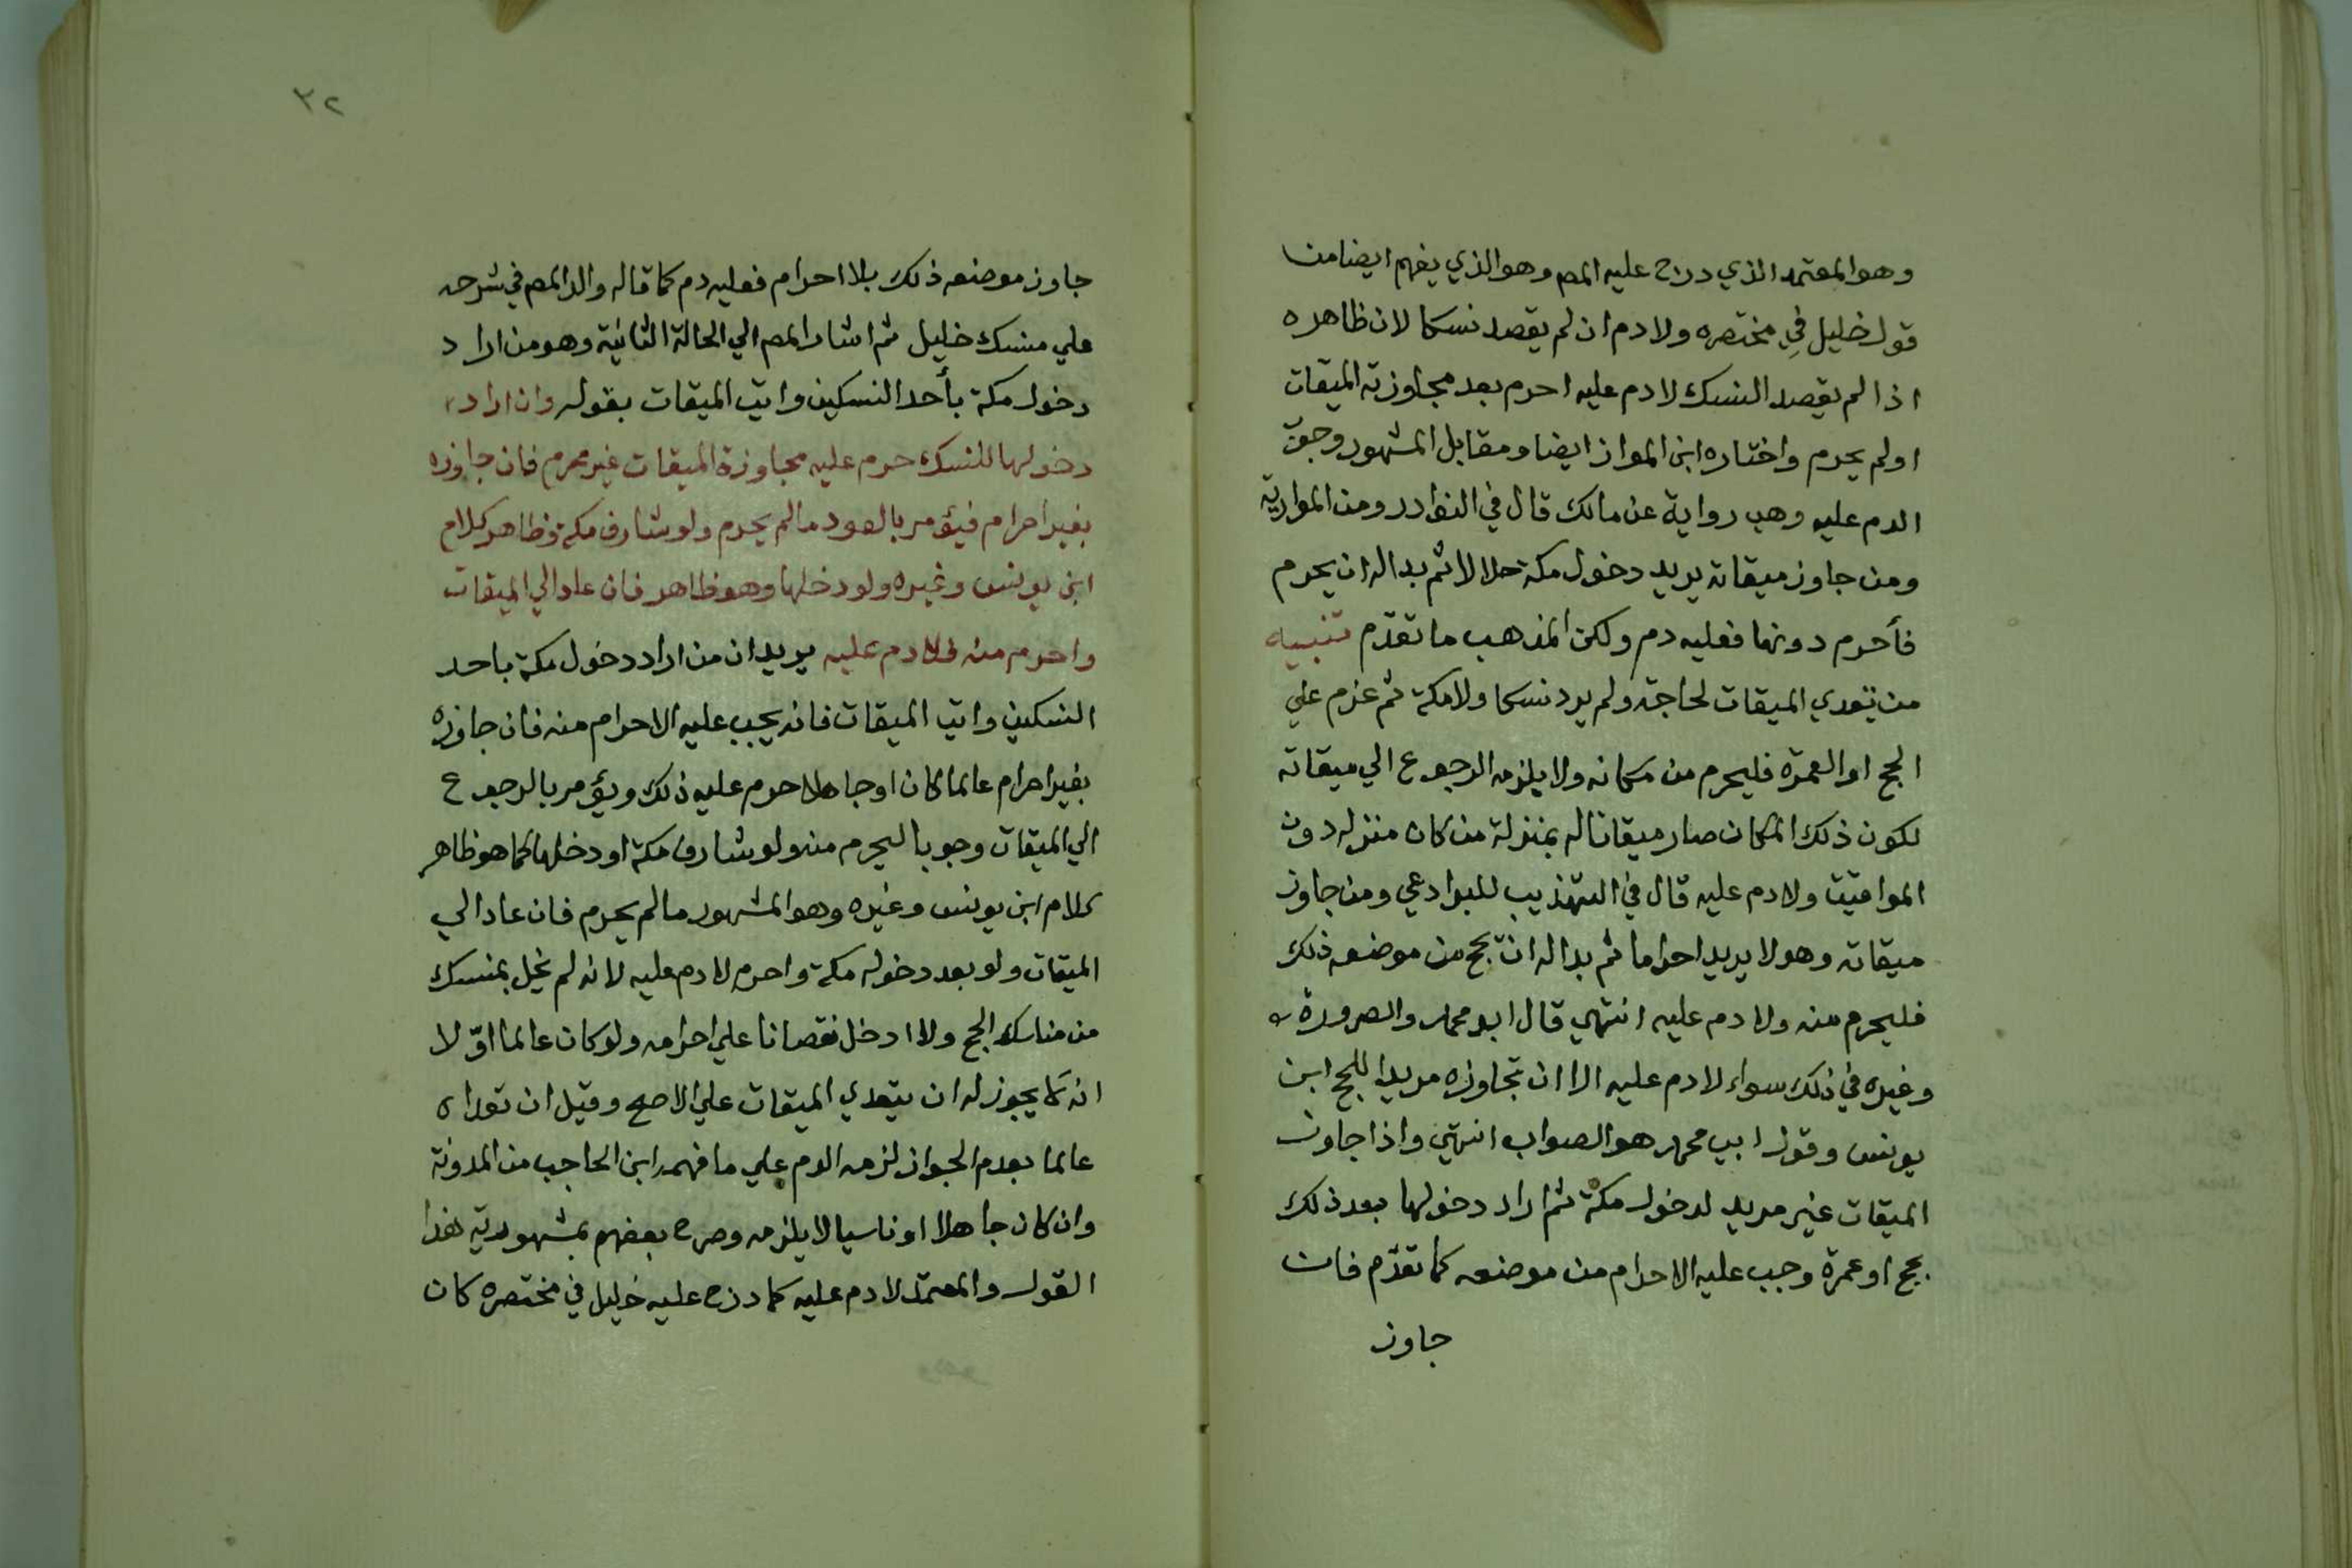 وهو المعتمد الذي درج عليه المص وهو الذي يفهم ايضا من
قول خليل في مختصره ولا دم ان لم يقصد نسكا لان ظاهره
اذا لم يقصد النسك لا دم عليه احرم بعد مجاوزته الميقات
اولم يحرم واختاره ابن المواز ايضا ومقابل المشهور وجوب
الدم عليه وهي رواية عن مالك قال في النوادر ومن الموازية
ومن جاوز ميقاته يريد دخول مكة حلالا ثم بدا له ان يحرم
فأحرم دونها فعليه دم ولكن المذهب ما تقدّم تنبيه
من تعدي الميقات لحاجة ولم يرد نسكا ولا مكة ثم عزم علي
الحج او العمرة فليحرم من مكانه ولا يلزمه الرجوع الي ميقاته
لكون ذلك المكان صار ميقاتا له بمنزلة من كان منزله دون
المواقيت ولا دم عليه قال في التهذيب للبرادعي ومن جاوز
ميقاته وهو لا يريد احراما ثم بدا له ان يحج من موضعه ذلك
فليحرم منه ولا دم عليه انتهي قال ابو محمد والصرورة
وغيره في ذلك سواء لا دم عليه الا ان تجاوزه مريدا للحج ابن
يونس وقول ابي محمد هو الصواب انتهي واذا جاوز
الميقات غير مريد لدخول مكة ثم اراد دخولها بعد ذلك
بحج او عمرة وجب عليه الاحرام من موضعه كما تقدّم فان
جاوز
٣٢
جاوز موضعه ذلك بلا احرام فعليه دم كما قاله والد المص في شرحه
علي منسك خليل ثم اشار المص الي الحالة الثانية وهو من اراد
دخول مكة بأحد النسكين واتي الميقات بقوله وان اراد
دخولها للنسك حرم عليه مجاوزة الميقات غير محرم فان جاوزه
بغير احرام فيؤمر بالعود ما لم يحرم ولو شارف مكة وظاهر كلام
ابن يونس وغيره ولو دخلها وهو ظاهر فان عاد الي الميقات
واحرم منه فلا دم عليه يريد ان من اراد دخول مكة باحد
النسكين واتي الميقات فانه يجب عليه الاحرام منه فان جاوزه
بغير احرام عالما كان او جاهلا حرم عليه ذلك ويؤمر بالرجوع
الي الميقات وجوبا ليحرم منه ولو شارف مكة او دخلها كما هو ظاهر
كلام ابن يونس وغيره وهو المشهور ما لم يحرم فان عاد الي
الميقات ولو بعد دخوله مكة واحرم لا دم عليه لانه لم يخل بمنسك
من مناسك الحج ولا ادخل نقصانا علي احرامه ولو كان عالما اوّلا
انه لا يجوز له ان يتعدي الميقات علي الاصح وقيل ان تعداه
عالما بعدم الجواز لزمه الدم علي ما فهمه ابن الحاجب من المدونة
وان كان جاهلا او ناسيا لا يلزمه وصرح بعضهم بمشهورية هذا
القول والمعتمد لا دم عليه كما درج عليه خليل في مختصره كان